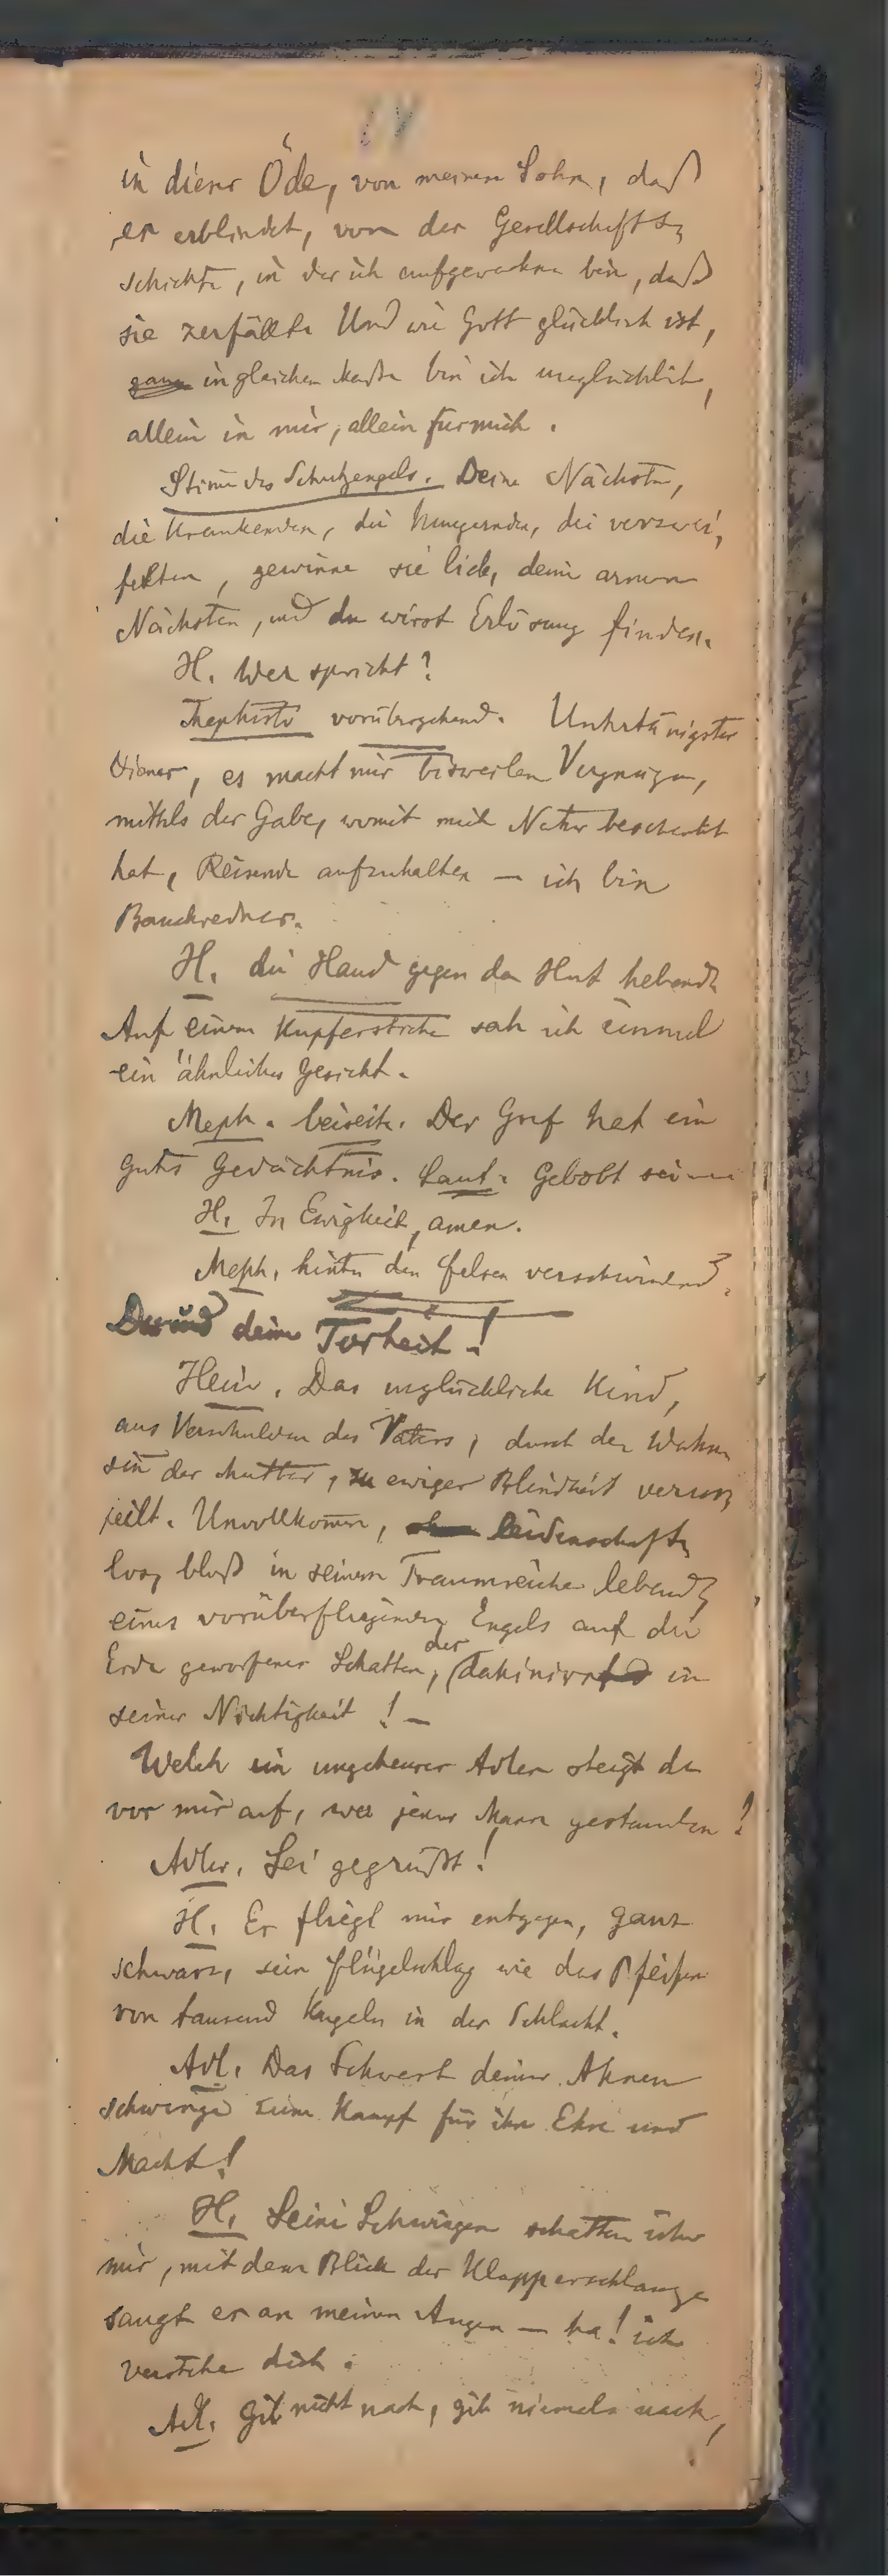 in dieser Öde, von meinem Sohn, daß
er erblindet, von der Gesellschafts=
schichte, in der ich aufgewachsen bin, daß
sie zerfällt. Und wie Gott glücklich ist,
in gleichem Maße bin ich unglücklich,
allein in mir, allein für mich.
Stimme des Schutzengels. Deine Nächsten,
die Krankenden, die Hungernden, die verzwei=
felten, gewinne sie lieb, deine armen
Nächsten, und du wirst Erlösung finden.
H. Wer spricht?
Mephisto vorübergehend. Untertänigster
Diener, es macht mir bisweilen Vergnügen,
mittels der Gabe, womit mich Natur beschenkt
hat, Reisende aufzuhalten — ich bin
Bauchredner.
H. die Hand gegen den Hut hebend.
Auf einem Kupferstiche sah ich einmal
ein ähnliches Gesicht.
Meph. beiseite. Der Graf hat ein
gutes Gedächtnis. Laut. Gelobt sei —
H. In Ewigkeit, amen.
Meph. hinter den Felsen verschwindend.
Du und deine Torheit!
Hein. Das unglückliche Kind,
aus Verschulden des Vaters, durch den Wahn=
sinn der Mutter, zu ewiger Blindheit verur=
teilt. Unvollkommen, leidenschafts=
los, bloß in seinem Traumreiche lebend,
eines vorüberfliegenden Engels auf die
Erde geworfener Schatten, der dahinirrt in
seiner Nichtigkeit! —
Welch ein ungeheurer Adler steigt da
vor mir auf, wo jener Mann gestanden!
Adler. Sei gegrüßt!
H. Er fliegt mir entgegen, ganz
schwarz, sein Flügelschlag wie das Pfeifen
von tausend Kugeln in der Schlacht.
Adl. Das Schwert deiner Ahnen
schwinge zum Kampf für ihre Ehre und
Macht!
H. Seine Schwingen schatten über
mir, mit dem Blick der Klapperschlange
saugt er an meinen Augen — ha! ich
verstehe dich.
Adl. Gib nicht nach, gib niemals nach,